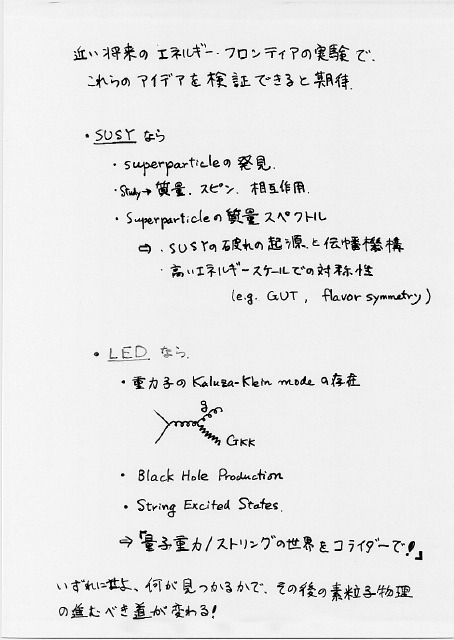 近い将来の エネルギー・フロンティアの実験で、
これらの アイデアを 検証できると期待.
・SUSY なら
・superparticleの発見.
・Study→ 質量、スピン、相互作用.
・Superparticleの質量スペクトル
⇨ ・SUSYの破れの起源と伝播機構
・高いエネルギースケールでの対称性
(e.g. GUT, flavor symmetry)
・LED なら.
・重力子のKaluza-Klein modeの存在
g
GKK
・Black Hole Production
・String Excited States.
⇒「量子重力/ストリングの世界をコライダーで!」
いずれにせよ、何が見つかるかで、その後の素粒子物理
の進むべき道が変わる!